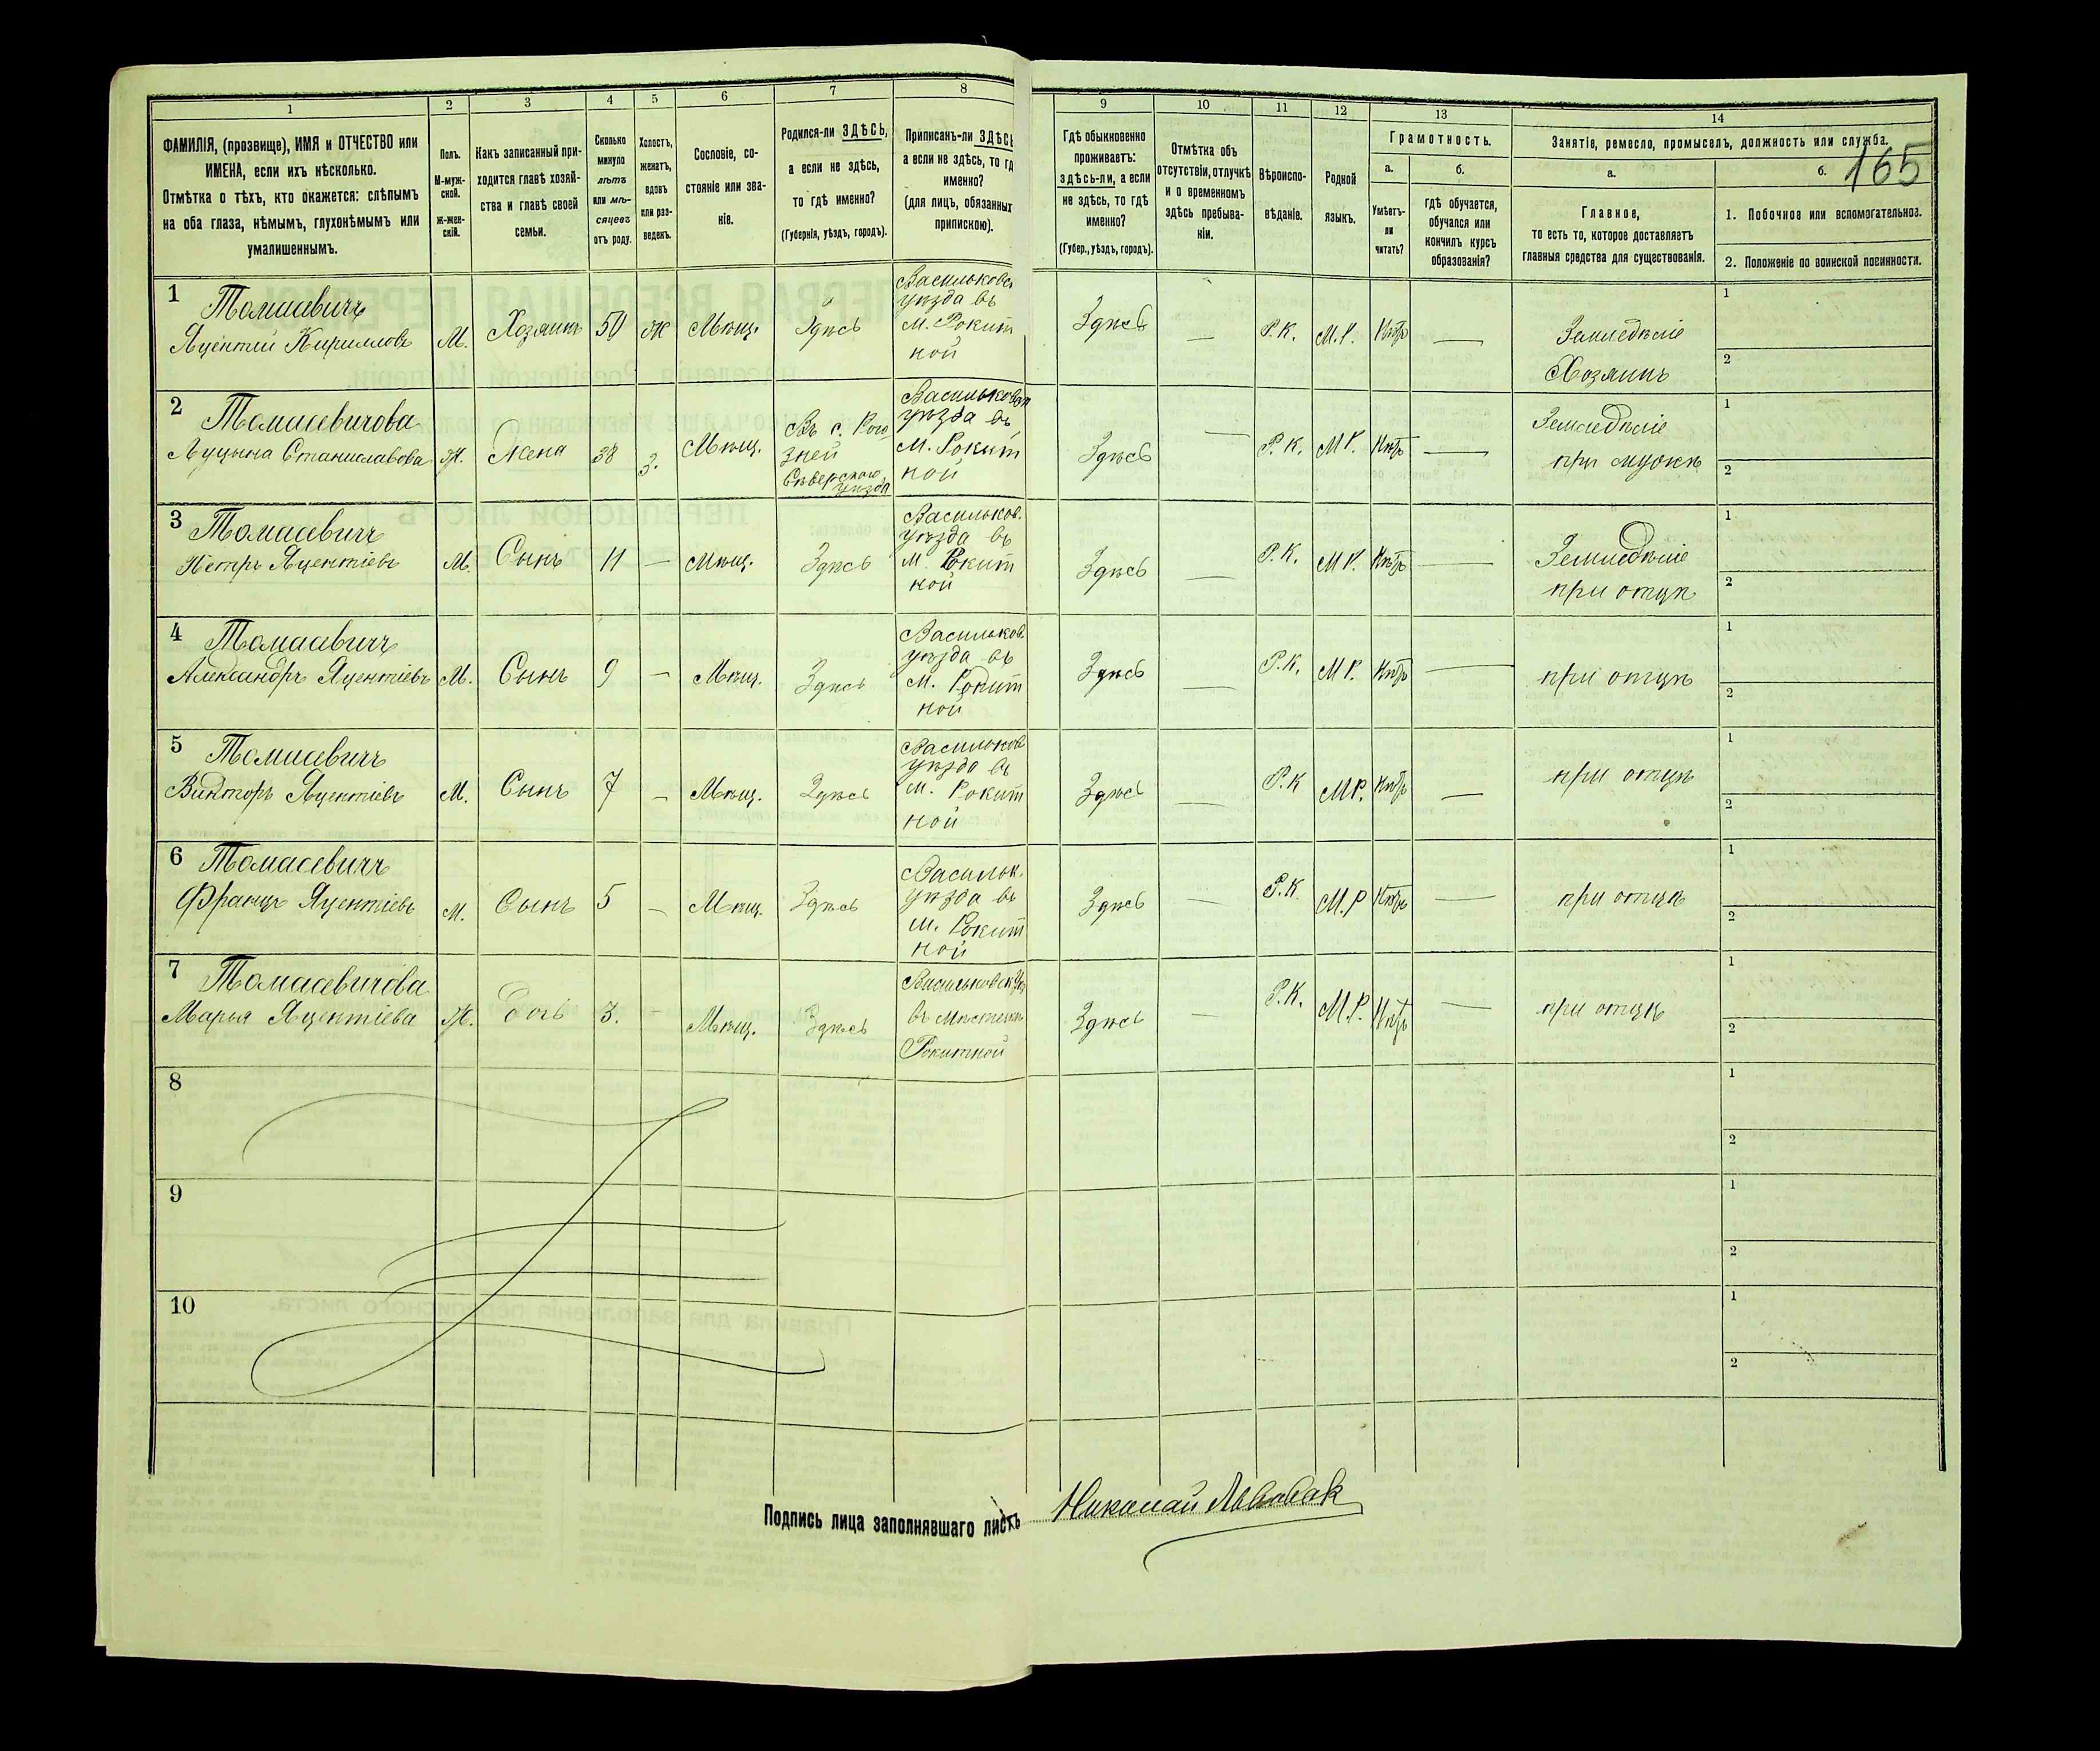 1 2 3 4 5 6 7 8 9 10 11 12 13 14
165
ФАМИЛІЯ, (прозвище), ИМЯ и ОТЧЕСТВО или
ИМЕНА, если ихъ нѣсколько.
Отмѣтка о тѣхъ, кто окажется: слѣпымъ
на оба глаза, нѣмымъ, глухонѣмымъ или
умалишеннымъ.
Полъ.
М-муж-
ской.
Ж-жен-
скій.
Какъ записанный при-
ходится главѣ хозяй-
ства и главѣ своей
семьи.
Сколько
минуло
лѣтъ
или мѣ-
сяцевъ
отъ роду.
Холостъ,
женатъ,
вдовъ
или раз-
веденъ.
Сословіе, со-
стояніе или зва-
ніе.
Родился-ли ЗДѢСЬ,
а если не здѣсь,
то гдѣ именно?
(Губернія, уѣздъ, городъ).
Приписанъ-ли ЗДѢСЬ
а если не здѣсь, то гд
именно?
(для лицъ, обязанных
припискою).
Гдѣ обыкновенно
проживаетъ:
здѣсь-ли, а если
не здѣсь, то гдѣ
именно?
(Губер., уѣздъ, городъ).
Отмѣтка объ
отсутствіи, отлучкѣ
и о временномъ
здѣсь пребыва-
ніи.
Вѣроиспо-
вѣданіе.
Родной
языкъ.
Грамотность.
а.
Умѣетъ-
ли
читать?
б.
гдѣ обучается,
обучался или
кончилъ курсъ
образованія?
Занятіе, ремесло, промыселъ, должность или служба.
а.
Главное,
то есть то, которое доставляетъ
главныя средства для существованія.
б.
1. Побочное или вспомогательное.
2. Положеніе по воинской повинности.
1 Томасевичъ
Яцентій Кирилловъ М. Хозяинъ 50 Ж Мѣщ. Здѣсь
Васильковс
уѣзда въ
м. Рокит
ной
Здѣсь — Р.К. М.Р. Нѣтъ —
Земледѣліе
Хозяинъ
1
2
2 Томасевичова
Луцына Станиславова Ж. Жена 38 З. Мѣщ.
Въ с.
зней
уѣзда
Васильковск
уѣзда въ
м. Рокит
ной
Здѣсь — Р.К. М.Р. Нѣтъ —
Земледѣліе
при мужѣ
1
2
3 Томасевичъ
Петръ Яцентіевъ М. Сынъ 11 — Мѣщ. Здѣсь
Васильков.
уѣзда въ
м. Рокит
ной
Здѣсь — Р.К. М.Р. Нѣтъ —
Земледѣліе
при отцѣ
1
2
4 Томасевичъ
Александръ Яцентіевъ М. Сынъ 9 — Мѣщ. Здѣсь
Васильков.
уѣзда въ
м. Рокит
ной
Здѣсь — Р.К. М.Р. Нѣтъ —
при отцѣ
1
2
5 Томасевичъ
Викторъ Яцентіевъ М. Сынъ 7 — Мѣщ. Здѣсь
Васильков
уѣзда въ
м. Рокит
ной
Здѣсь — Р.К М.Р. Нѣтъ —
при отцѣ
1
2
6 Томасевичъ
Францъ Яцентіевъ М. Сынъ 5 — Мѣщ. Здѣсь
Васильк.
уѣзда въ
м. Рокит
ной
Здѣсь — Р.К. М.Р Нѣтъ —
при отцѣ
1
2
7 Томасевичова
Марья Яцентіева Ж. Дочь 3. — Мѣщ. Здѣсь
въ мѣстечкѣ
Рокитной
Здѣсь — Р.К. М.Р. Нѣтъ —
при отцѣ
1
2
8
1
2
9
1
2
10
1
2
Подпись лица заполнявшаго листъ Николай